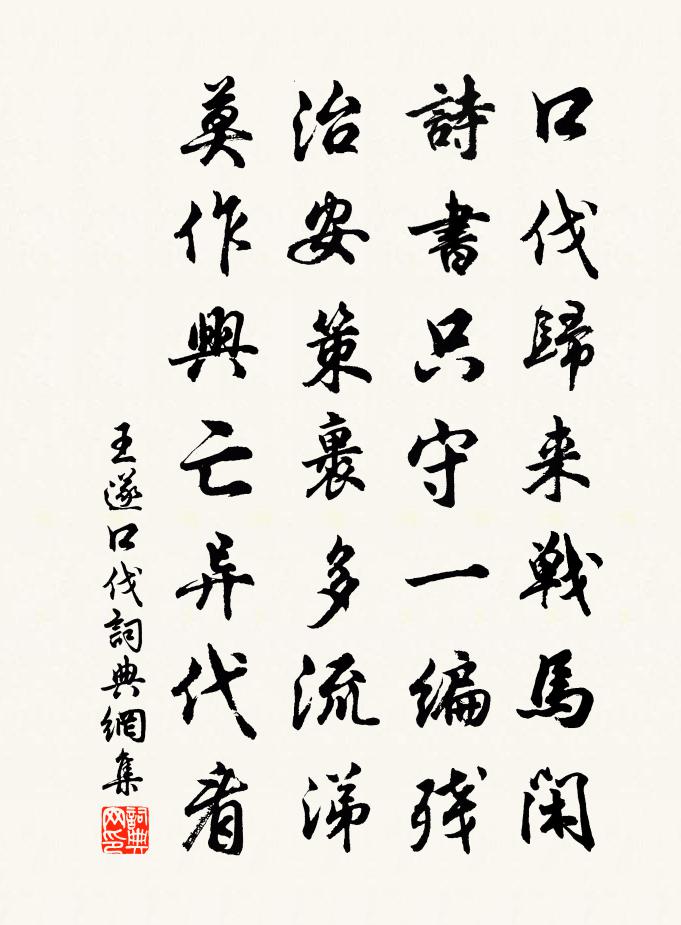 口伐歸来戦馬閑
詩書只守一編残
治安策裏多流涕
莫作興亡异代看
王遂口伐詞典網集
詞典网印